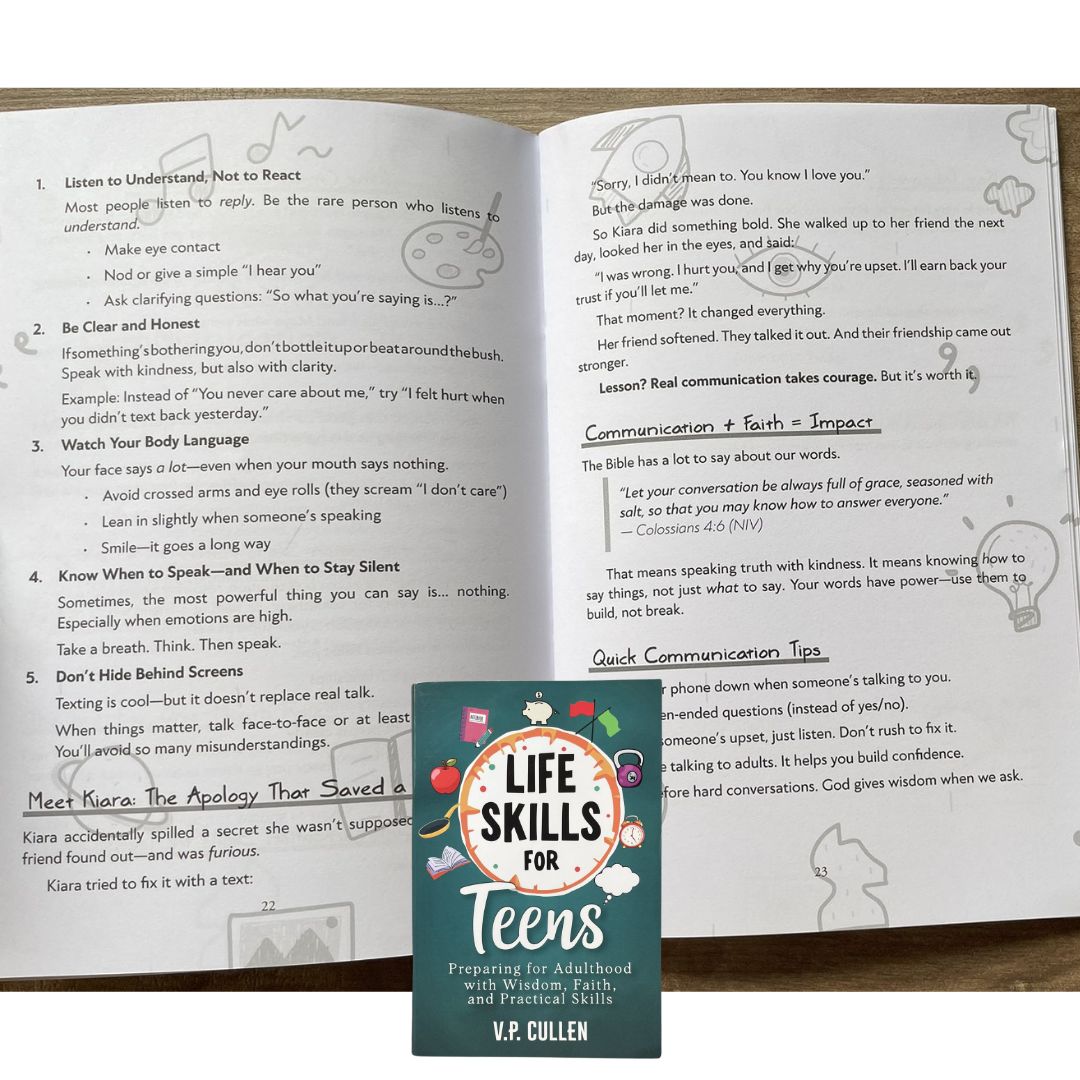 1. Listen to Understand, Not to React
Most people listen to reply. Be the rare person who listens to
understand.
· Make eye contact
· Nod or give a simple “I hear you”
· Ask clarifying questions: “So what you’re saying is...?”
2. Be Clear and Honest
If something’s bothering you, don’t bottle it up or beat around the bush.
Speak with kindness, but also with clarity.
Example: Instead of “You never care about me,” try “I felt hurt when
you didn’t text back yesterday.”
3. Watch Your Body Language
Your face says a lot—even when your mouth says nothing.
· Avoid crossed arms and eye rolls (they scream “I don’t care”)
· Lean in slightly when someone’s speaking
· Smile—it goes a long way
4. Know When to Speak—and When to Stay Silent
Sometimes, the most powerful thing you can say is... nothing.
Especially when emotions are high.
Take a breath. Think. Then speak.
5. Don’t Hide Behind Screens
Texting is cool—but it doesn’t replace real talk.
When things matter, talk face-to-face or at least
You’ll avoid so many misunderstandings.
Meet Kiara: The Apology That Saved a
Kiara accidentally spilled a secret she wasn’t supposed
friend found out—and was furious.
Kiara tried to fix it with a text:
22
“Sorry, I didn’t mean to. You know I love you.”
But the damage was done.
So Kiara did something bold. She walked up to her friend the next
day, looked her in the eyes, and said:
“I was wrong. I hurt you, and I get why you’re upset. I’ll earn back your
trust if you’ll let me.”
That moment? It changed everything.
Her friend softened. They talked it out. And their friendship came out
stronger.
Lesson? Real communication takes courage. But it’s worth it.
Communication + Faith = Impact
The Bible has a lot to say about our words.
“Let your conversation be always full of grace, seasoned with
salt, so that you may know how to answer everyone.”
— Colossians 4:6 (NIV)
That means speaking truth with kindness. It means knowing how to
say things, not just what to say. Your words have power—use them to
build, not break.
Quick Communication Tips
phone down when someone’s talking to you.
en-ended questions (instead of yes/no).
someone’s upset, just listen. Don’t rush to fix it.
talking to adults. It helps you build confidence.
fore hard conversations. God gives wisdom when we ask.
23
LIFE
SKILLS
FOR
Teens
Preparing for Adulthood
with Wisdom, Faith,
and Practical Skills
V.P. CULLEN